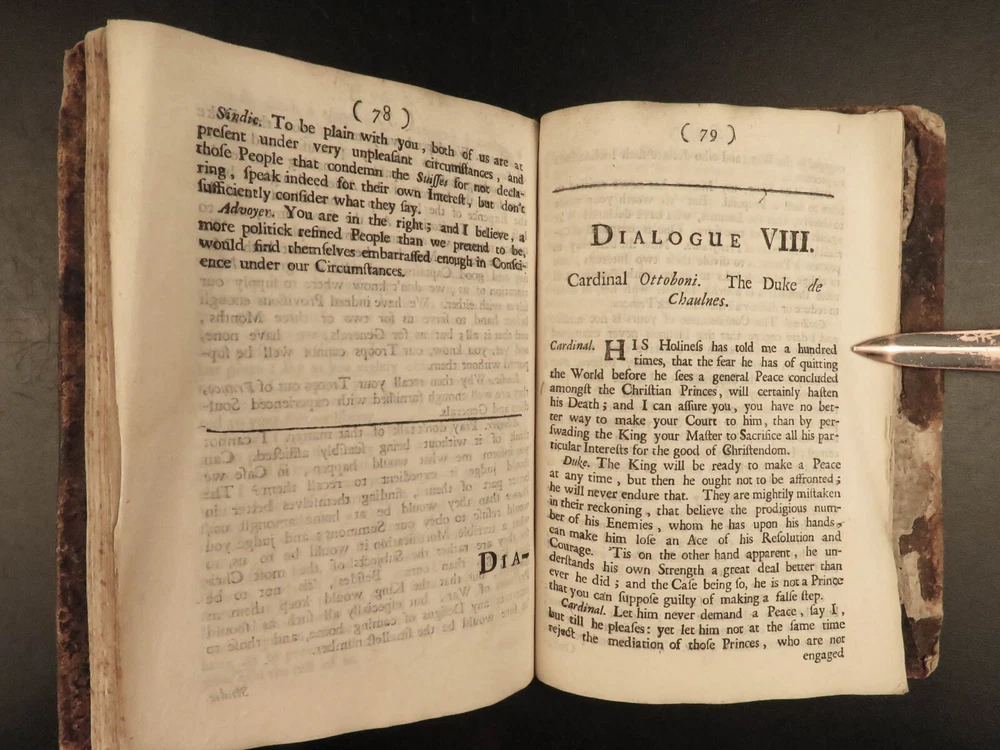 ( 78 )
Sindic. To be plain with you, both of us are at
present under very unpleaſant circumſtances, and
thoſe People that condemn the Suiſſes for not decla-
ring, ſpeak indeed for their own Intereſt, but don't
ſufficiently conſider what they ſay.
Advoyer. You are in the right; and I believe, a
more politick refined People than we pretend to be,
would find themſelves embarraſſed enough in Conſci-
ence under our Circumſtances.
DIA-
( 79 )
DIALOGUE VIII.
Cardinal Ottoboni. The Duke de
Chaulnes.
Cardinal. HIS Holineſs has told me a hundred
times, that the fear he has of quitting
the World before he ſees a general Peace concluded
amongſt the Chriſtian Princes, will certainly haſten
his Death; and I can aſſure you, you have no bet-
ter way to make your Court to him, than by per-
ſwading the King your Maſter to Sacrifice all his par-
ticular Intereſts for the good of Chriſtendom.
Duke. The King will be ready to make a Peace
at any time, but then he ought not to be affronted;
he will never endure that. They are mightily miſtaken
in their reckoning, that believe the prodigious num-
ber of his Enemies, whom he has upon his hands,
can make him loſe an Ace of his Reſolution and
Courage. 'Tis on the other hand apparent, he un-
derſtands his own Strength a great deal better than
ever he did; and the Caſe being ſo, he is not a Prince
that you can ſuppoſe guilty of making a falſe ſtep.
Cardinal. Let him never demand a Peace, ſay I,
but till he pleaſes: yet let him not at the ſame time
reject the mediation of thoſe Princes, who are not
engaged